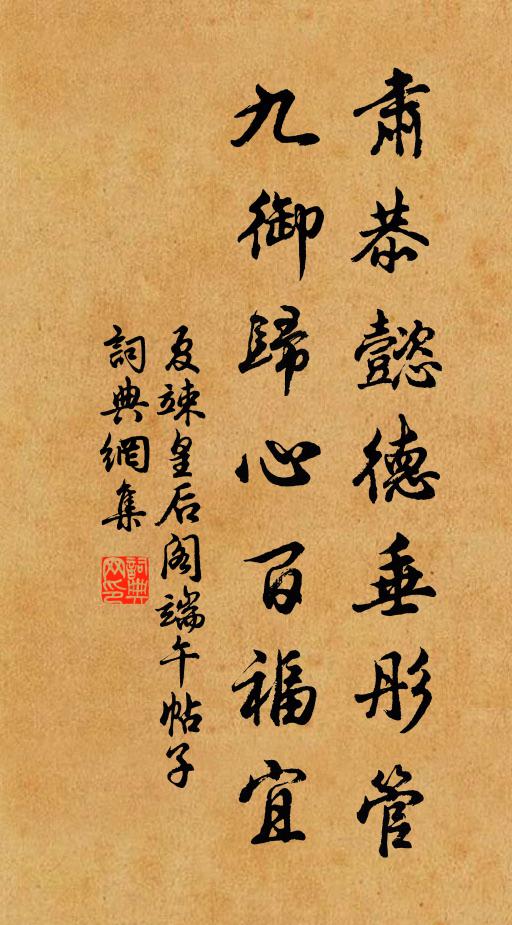 肅恭懿德垂彤管
九御歸心百福宜
夏竦皇后阁端午帖子
詞典網集
詞典
网印